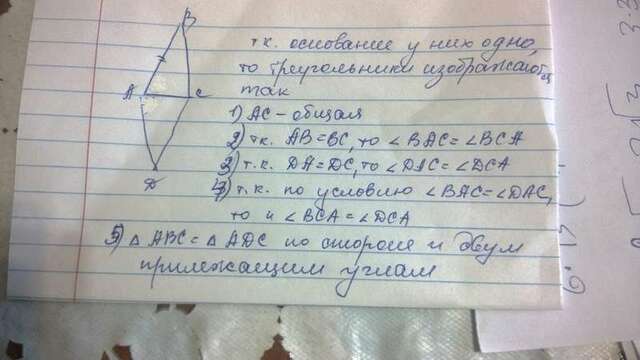 B
т.к. основание у них одно,
то треугольники изображаются
так
A
C
1) AC - общая
2) т.к. AB=BC, то ∠BAC=∠BCA
3) т.к. DA=DC, то ∠DAC=∠DCA
4) т.к. по условию ∠BAC=∠DAC,
D
то и ∠BCA=∠DCA
5) △ABC=△ADC по стороне и двум
прилежащим углам